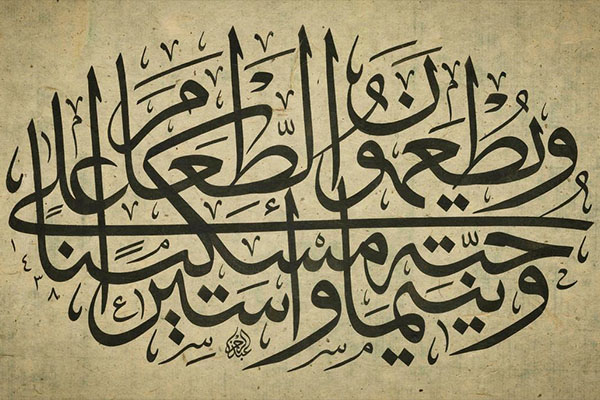 ويطعمون الطعام على
حبه مسكينا ويتيما وأسيرا
١٤٣٨